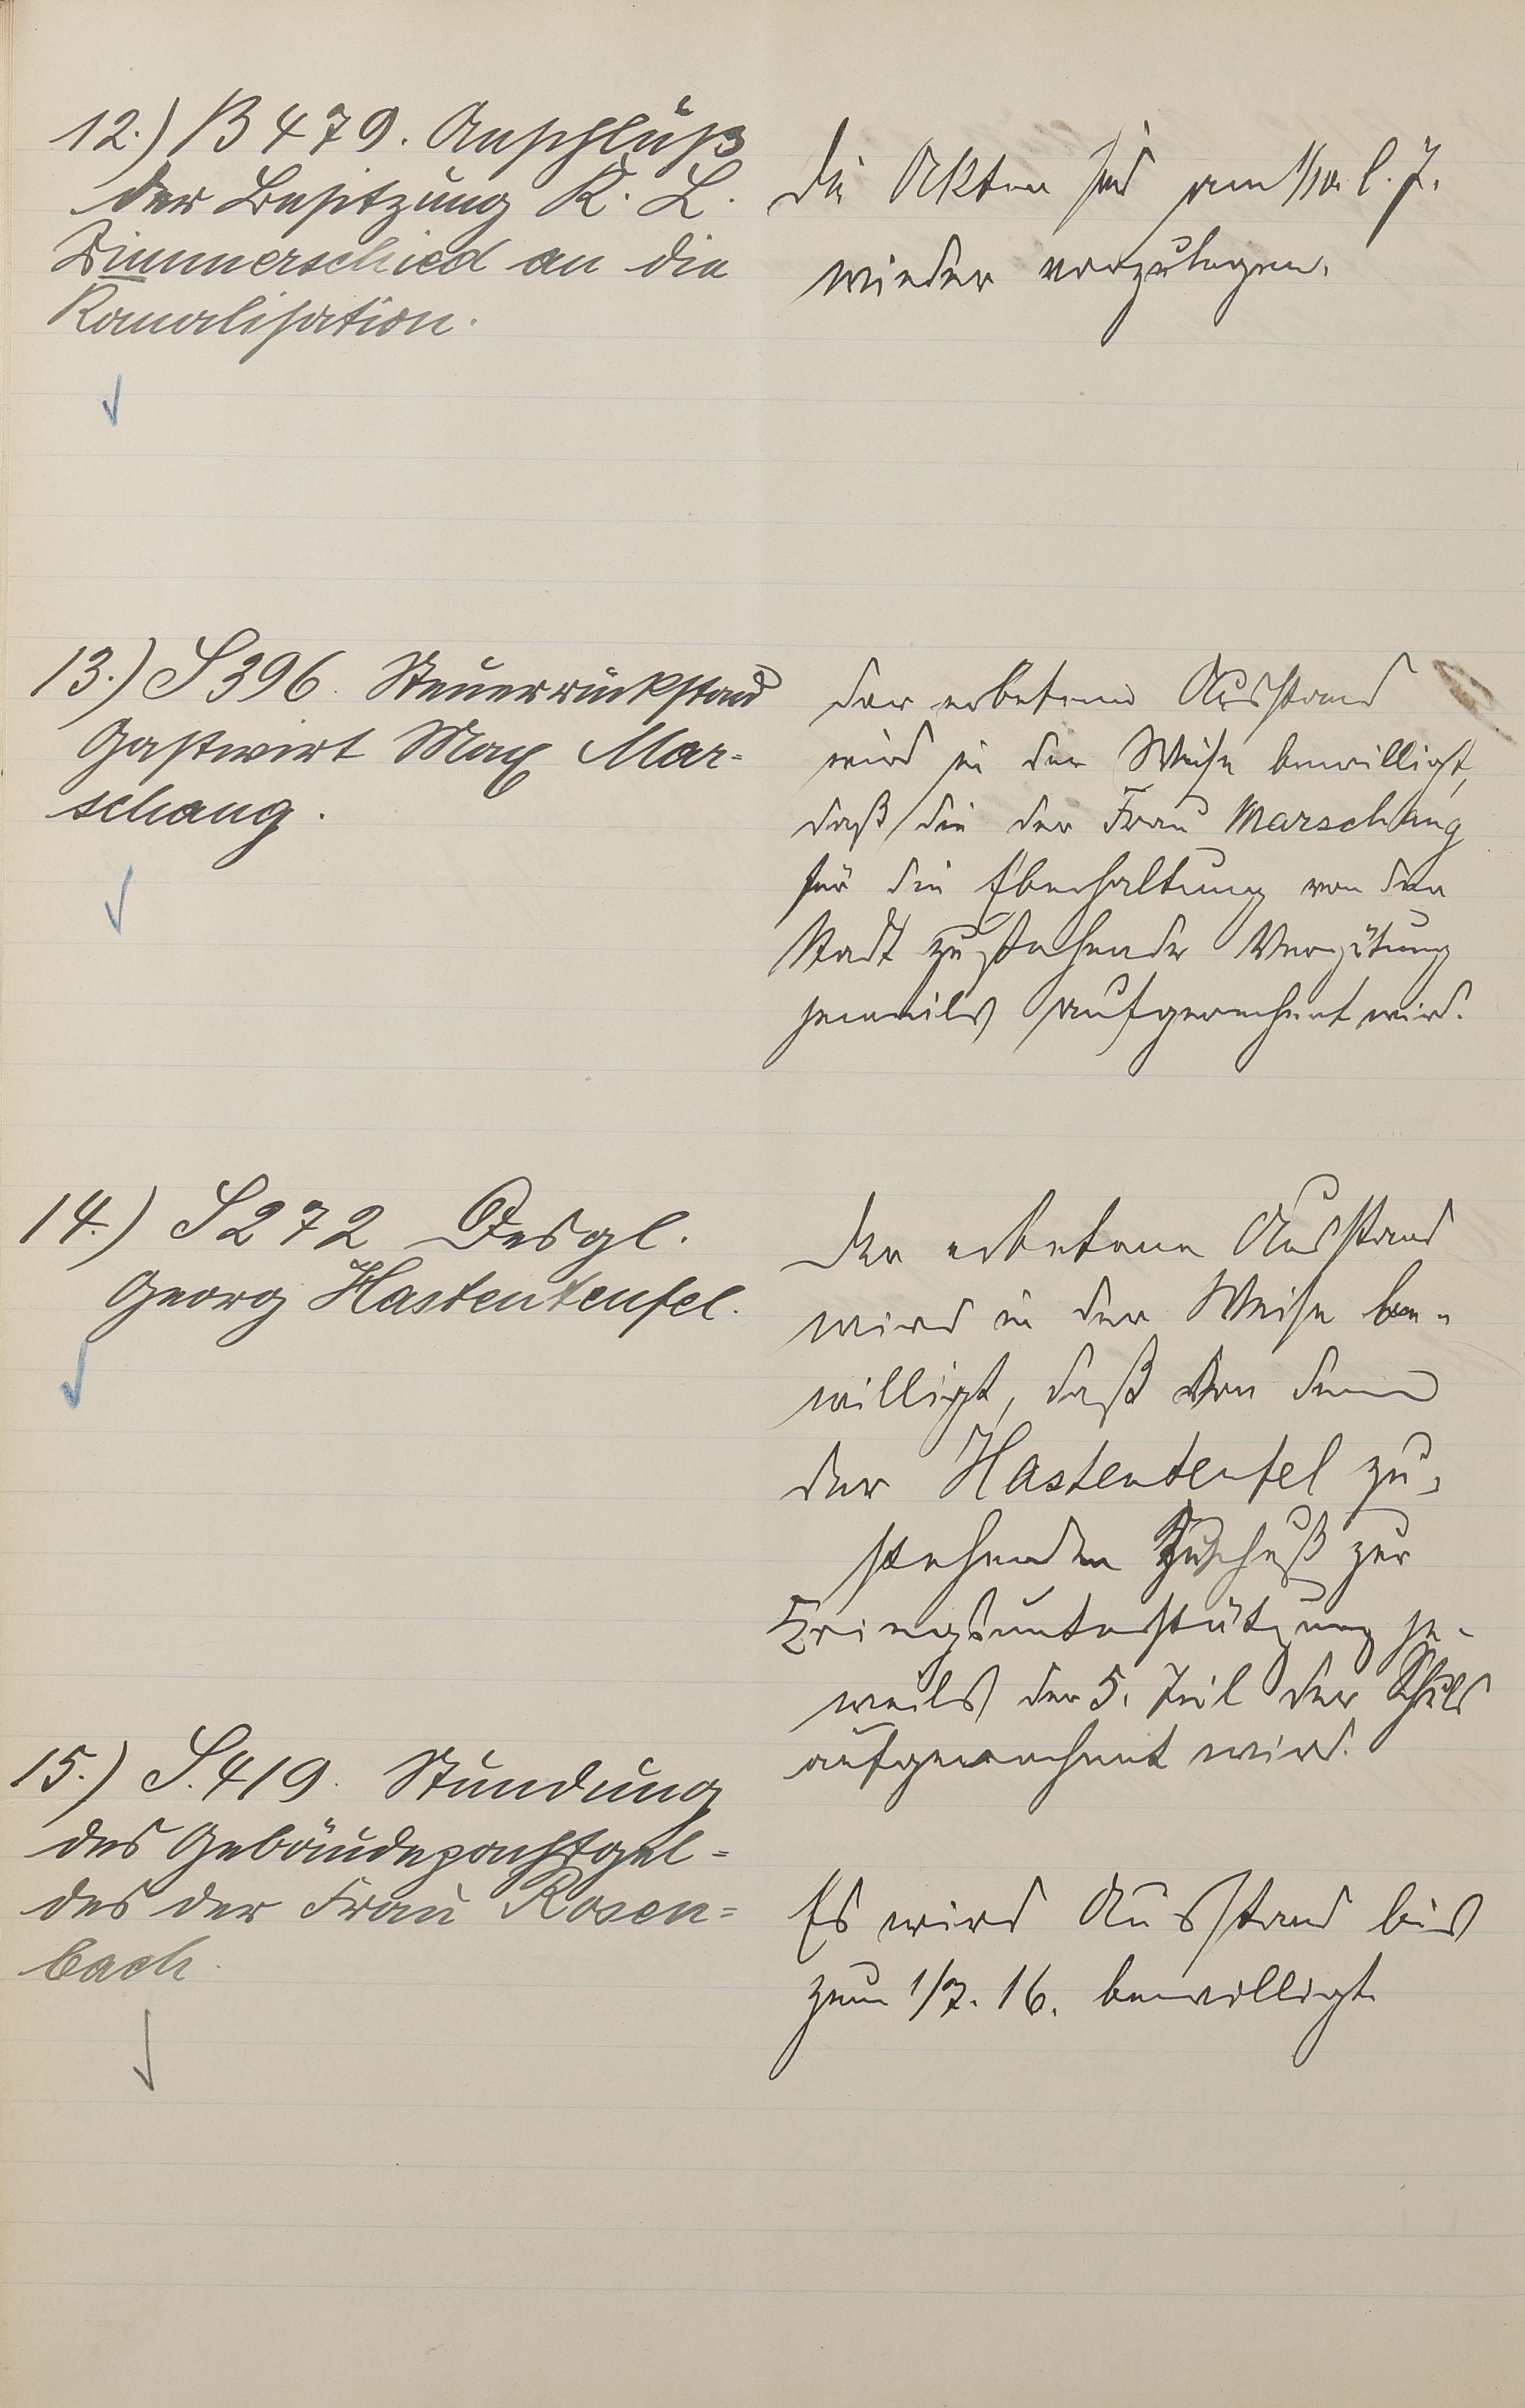 12.) B 479. Anschluß
der Besitzung K. L.
Zimmerschied an die
Kanalisation.
Die Akten sind am 1/10. l. J.
wieder vorzulegen.
13.) S 396. Steuerrückstand
Gastwirt Max Mar-
schang.
Der erbetene Ausstand
wird in der Weise bewilligt,
daß die der Frau Marschang
für die Eberhaltung von der
Stadt zustehende Vergütung
jeweils aufgerechnet wird.
14.) S 272 Desgl.
Georg Hastenteufel.
Der erbetene Ausstand
wird in der Weise be-
willigt, daß von dem
der Hastenteufel zu-
stehenden Zuschuß zur
Kriegsunterstützung je-
weils der 5. Teil der Schuld
aufgerechnet wird.
15.) S. 419. Stundung
des Gebäudepachtgel-
des der Frau Rosen-
bach.
Es wird Ausstand bis
zum 1/7. 16. bewilligt.